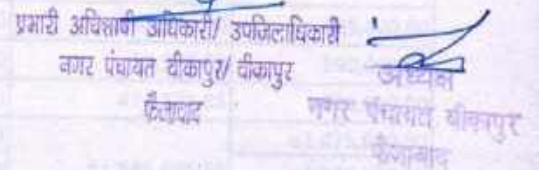 प्रभारी अधिशाषी अधिकारी/ उपजिलाधिकारी
नगर पंचायत बीकापुर/ बीकापुर
फैजाबाद
अध्यक्ष
नगर पंचायत बीकापुर
फैजाबाद